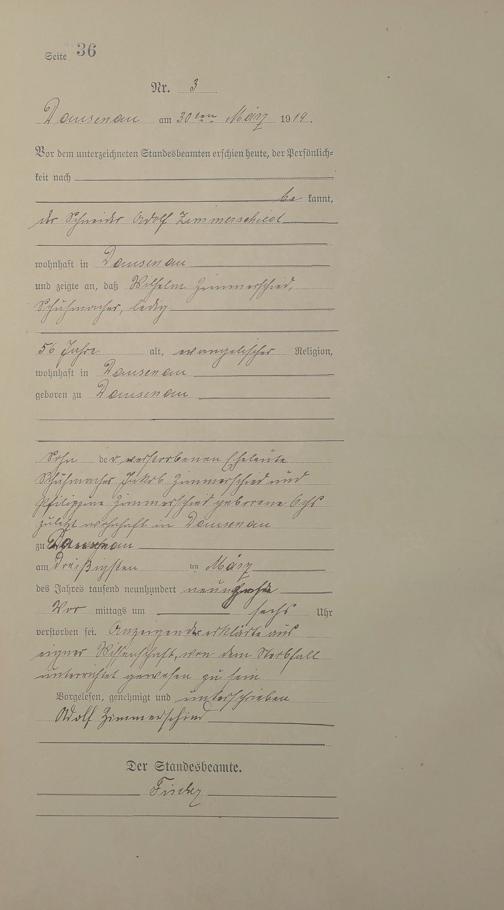 Seite 36
Nr. 3
Dausenau am 30ten März 1919.
Vor dem unterzeichneten Standesbeamten erschien heute, der Persönlich-
keit nach
be kannt,
der Schneider Adolf Zimmerschied
wohnhaft in Dausenau
und zeigte an, daß Wilhelm Zimmerschied,
Schuhmacher, ledig
56 Jahre alt, evangelischer Religion,
wohnhaft in Dausenau
geboren zu Dausenau
Sohn der verstorbenen Eheleute
Schuhmacher Jakob Zimmerschied und
Philippine Zimmerschied geborene
zuletzt wohnhaft in Dausenau
zu Dausenau
am dreißigsten im März
des Jahres tausend neunhundert neunzehn
Vor mittags um sechs Uhr
verstorben sei. Anzeigender erklärte aus
eigner Wissenschaft von dem Sterbfall
unterrichtet gewesen zu sein
Vorgelesen, genehmigt und unterschrieben
Adolf Zimmerschied
Der Standesbeamte.